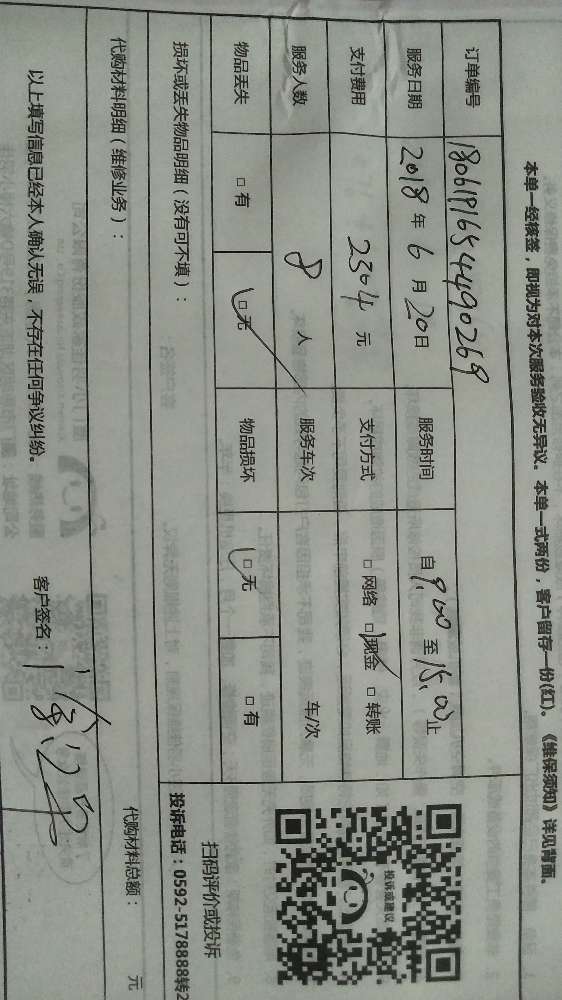 本单一经核签，即视为对本次服务验收无异议。本单一式两份，客户留存一份(红)。《维保须知》详见背面。
订单编号 18061916544490269
服务日期 2018年6月20日 服务时间 自9:00至15:00止
支付费用 2304元 支付方式 □网络 □现金 □转账
服务人数 8人 服务车次 车/次
物品丢失 □有 □无 物品损坏 □无 □有
损坏或丢失物品明细（没有可不填）：
投诉或建议
扫码评价或投诉
投诉电话：0592-5178888转2
代购材料明细（维修业务）：
代购材料总额： 元
以上填写信息已经本人确认无误，不存在任何争议纠纷。 客户签名：